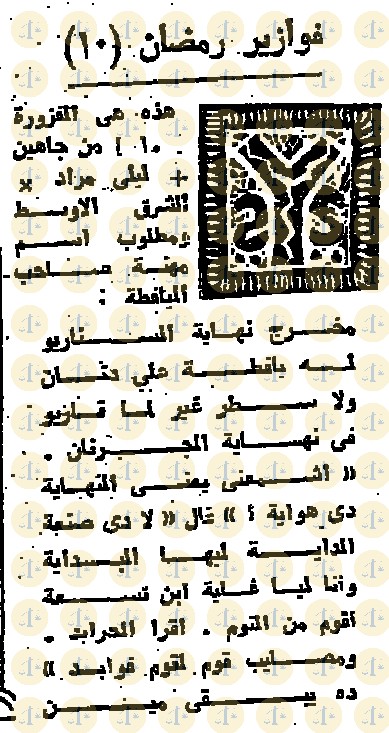 فوازير رمضان (١٠)
هذه هى الفزورة
١٠ من جاهين
+ ليلى مراد ×
الشرق الاوسط
ومطلوب اسم
مهنة صاحب
اليافطة :
مخرج نهاية السناريو
لـه يافطة على دكان
ولا سطر غير لما قازيو
فى نهاية الجرنان .
« اشمعنى يعنى النهاية
دى هواية ؟ » قال « لا دى صنعة
البداية
وأنا ليا غاية ابن تسعة
أقوم من النوم . أقرا
قوم تقوم
ده يبقى مين